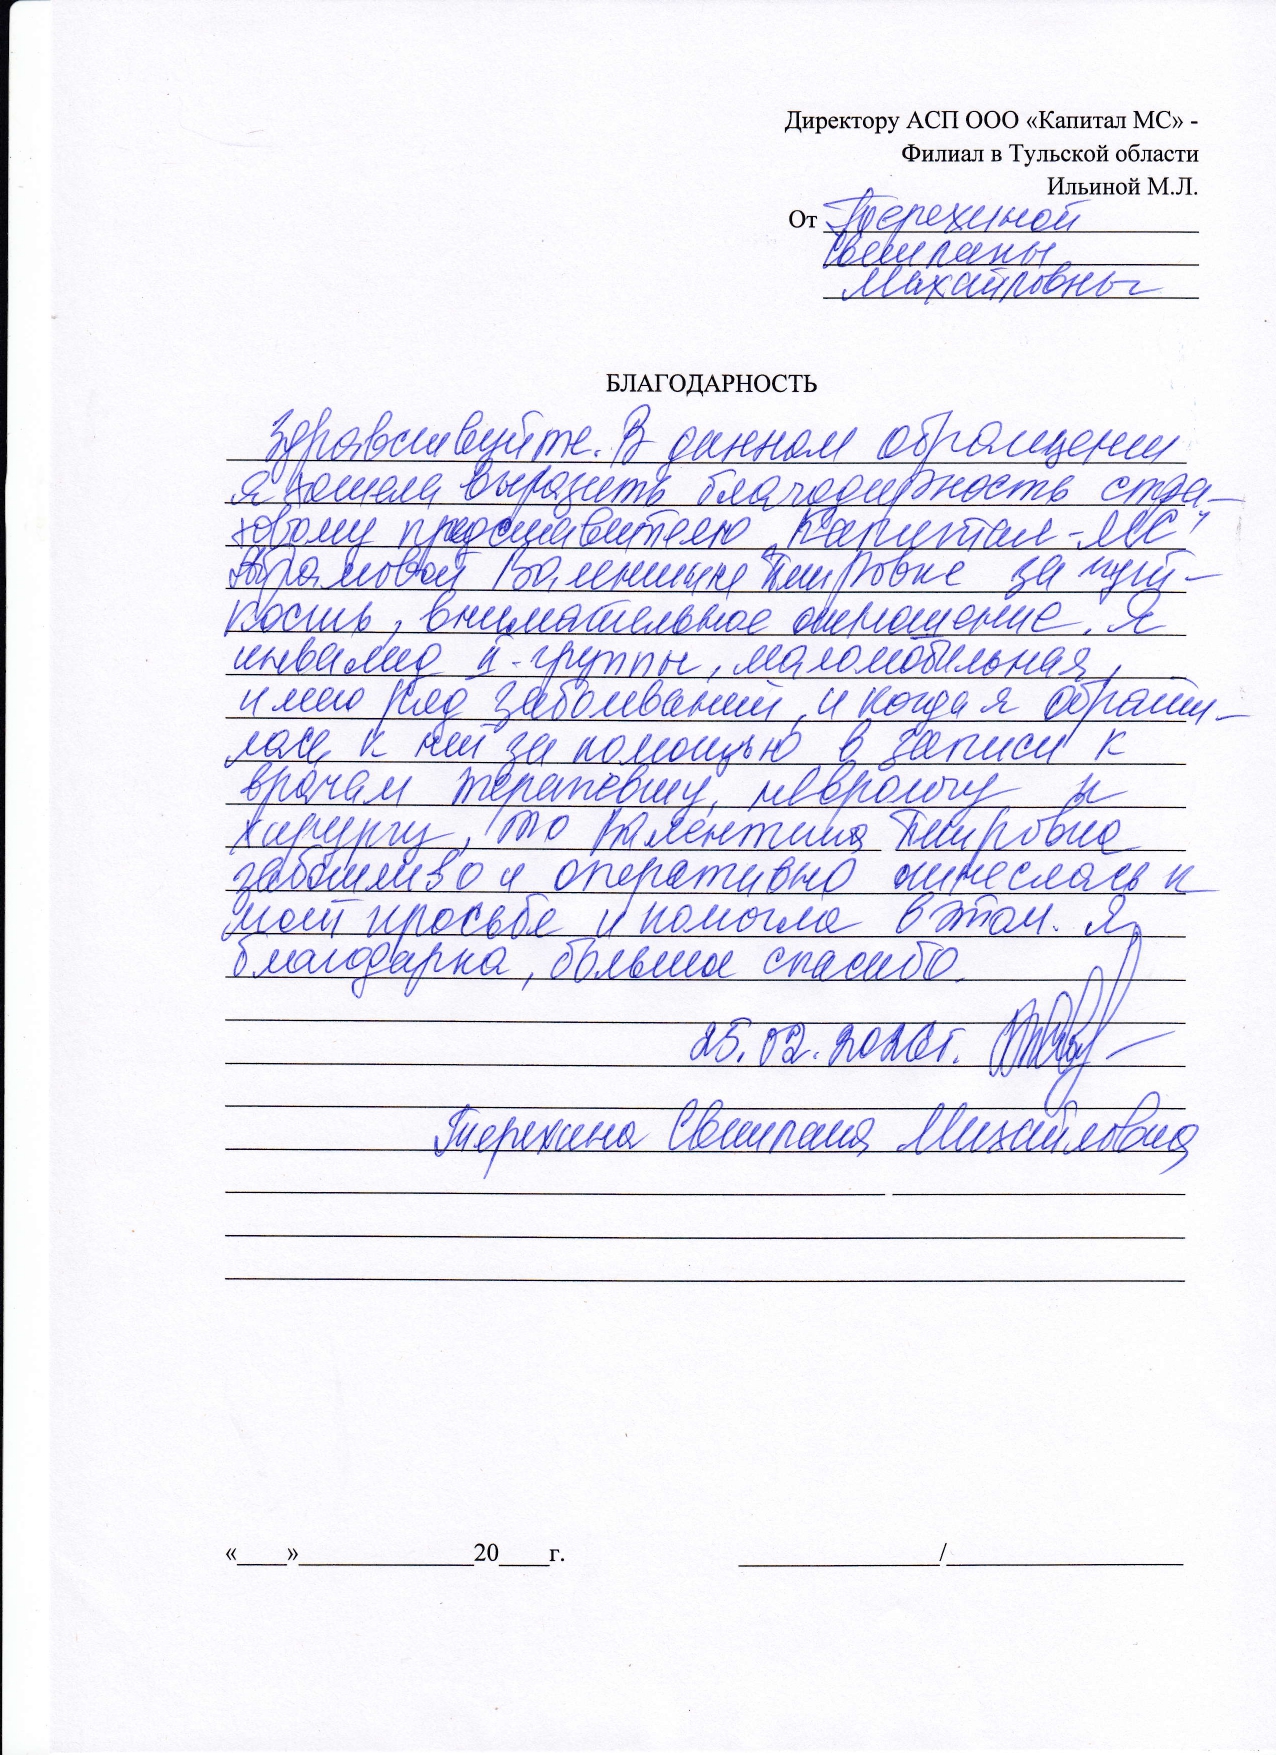 Директору АСП ООО «Капитал МС» -
Филиал в Тульской области
Ильиной М.Л.
От Терехиной
Светланы
Михайловны
БЛАГОДАРНОСТЬ
Здравствуйте. В данном обращении
я хотела выразить благодарность стра-
ховому представителю "Капитал-МС"
Абрамовой Валентине за чут-
кость, внимательное отношение. Я
инвалид II-группы, маломобильная,
имею ряд заболеваний, и когда я обрати-
лась к ней за помощью в записи к
врачам терапевту, неврологу и
хирургу, то Валентина
заботливо и оперативно отнеслась к
моей просьбе и помогла в этом. Я
благодарна, большое спасибо.
25.02.2026г.
Терехина Светлана Михайловна
«____»______________20____г. ________________/___________________